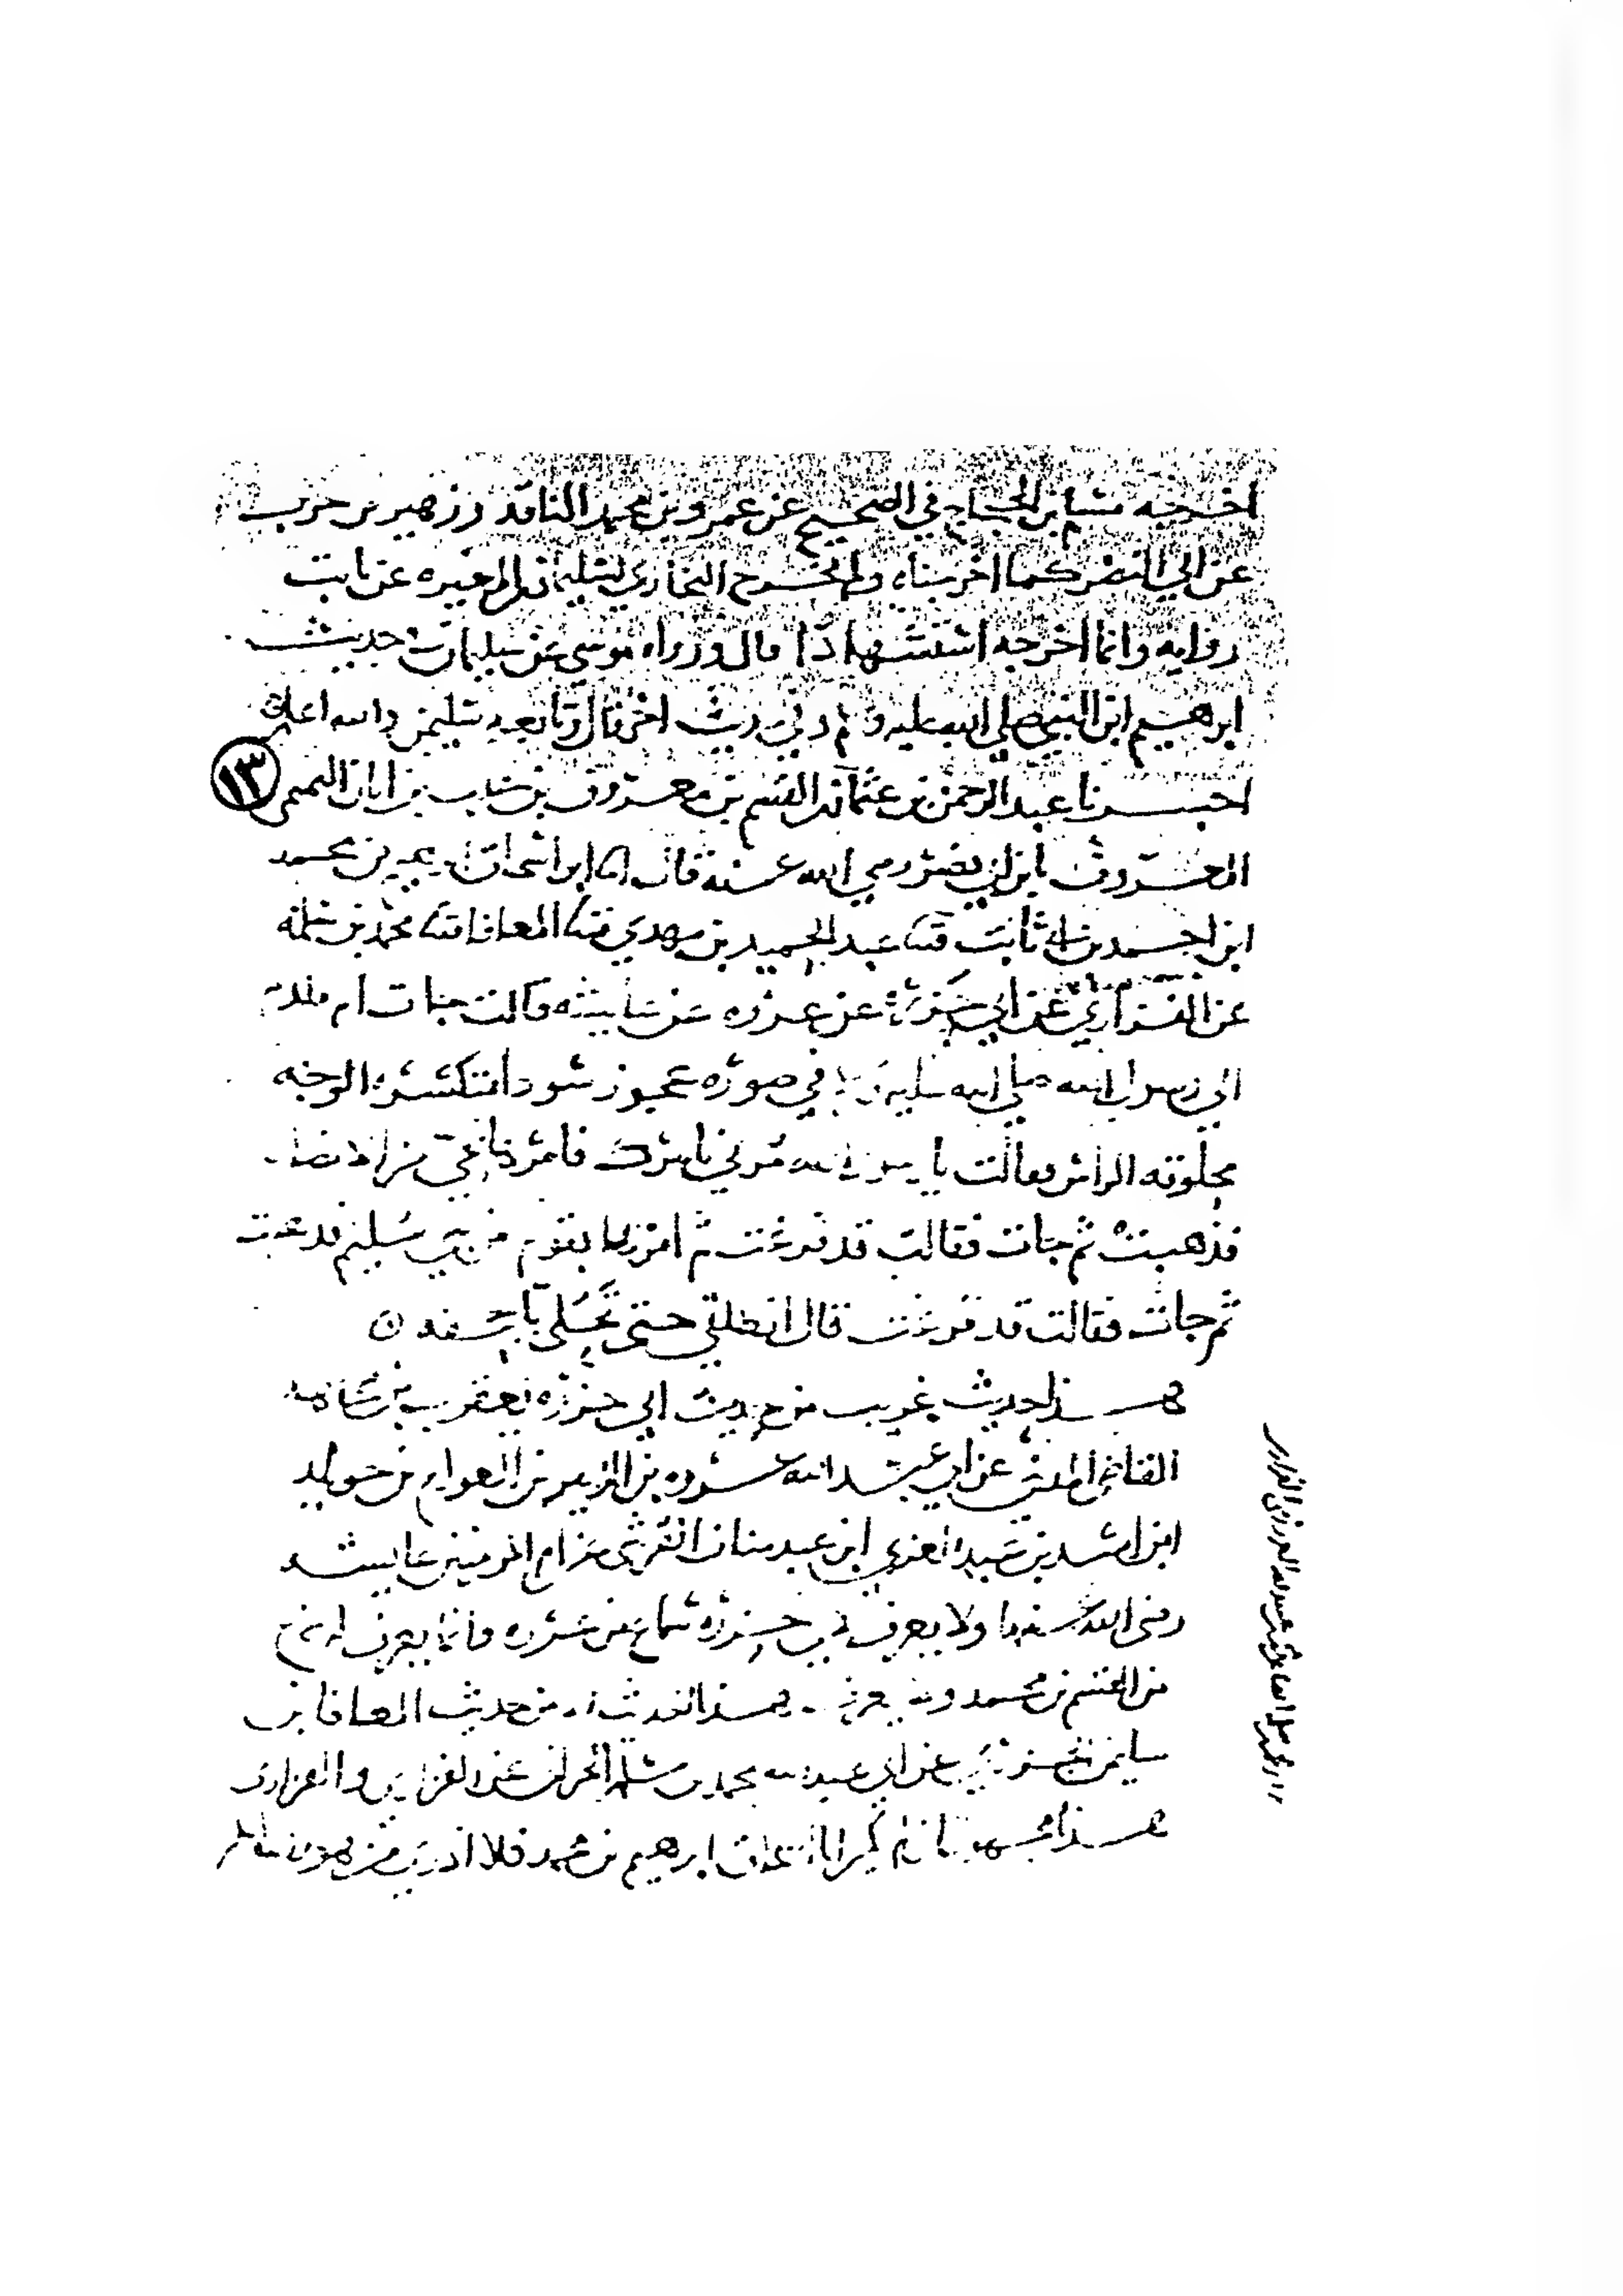 اخرجه مسلم بن الحجاج في الصحيح عن عمرو بن محمد الناقد وزهير بن حرب
عن ابي النضر كما اخرجناه ولم يخرج البخاري لسليمان بن المغيره عن ثابت
روايه وانما اخرجه استشهادا قال ورواه موسى عن سليمان حديث
ابرهيم ابن النبي صلى الله عليه وسلم وفي حديث اخر قال وتابعه سليمن والله اعلم
١٣
اخبرنا عبد الرحمن بن عثمان بن القسم بن معروف بن حبيب بن ابان التميمي
المعروف بابن ابي نصر رضي الله عنه قال ابو اسحاق ابرهيم بن محمد
ابن احمد بن ابي ثابت ثنا عبد الحميد بن مهدي ثنا المعافا ثنا محمد بن سلمه
عن الفزاري عن ابي حزره عن عروه عن عايشه قالت جات ام ملدم
الى رسول الله صلى الله عليه وسلم في صوره عجوز سودا منكسره الوجه
محلوقه الراس فقالت يا رسول الله مرني بامرك فامرها بحي من الانصار
فذهبت ثم جات فقالت قد فرغت ثم امرها بقوم من بني سليم فذهبت
ثم جات فقالت قد فرغت قال انطلقي حتى
هذا حديث غريب من حديث ابي حزره يعقوب بن مجاهد
القاص المدني عن ابي عبد الله عروه بن الزبير بن العوام بن خويلد
ابن اسد بن عبد العزى ابن عبد مناف القرشي عن ام المومنين عايشه
رضي الله عنها ولا يعرف لابي حزره سماع من عروه وانما يعرف له
من القسم بن محمد هذا الحديث من حديث المعافا بن
سليمن عن ابي عبد الله محمد بن سلمه الحراني عن الفزاري والفزاري
هذا مجهول ان لم يكن ابا اسحاق ابرهيم بن محمد فلا ادري من هو